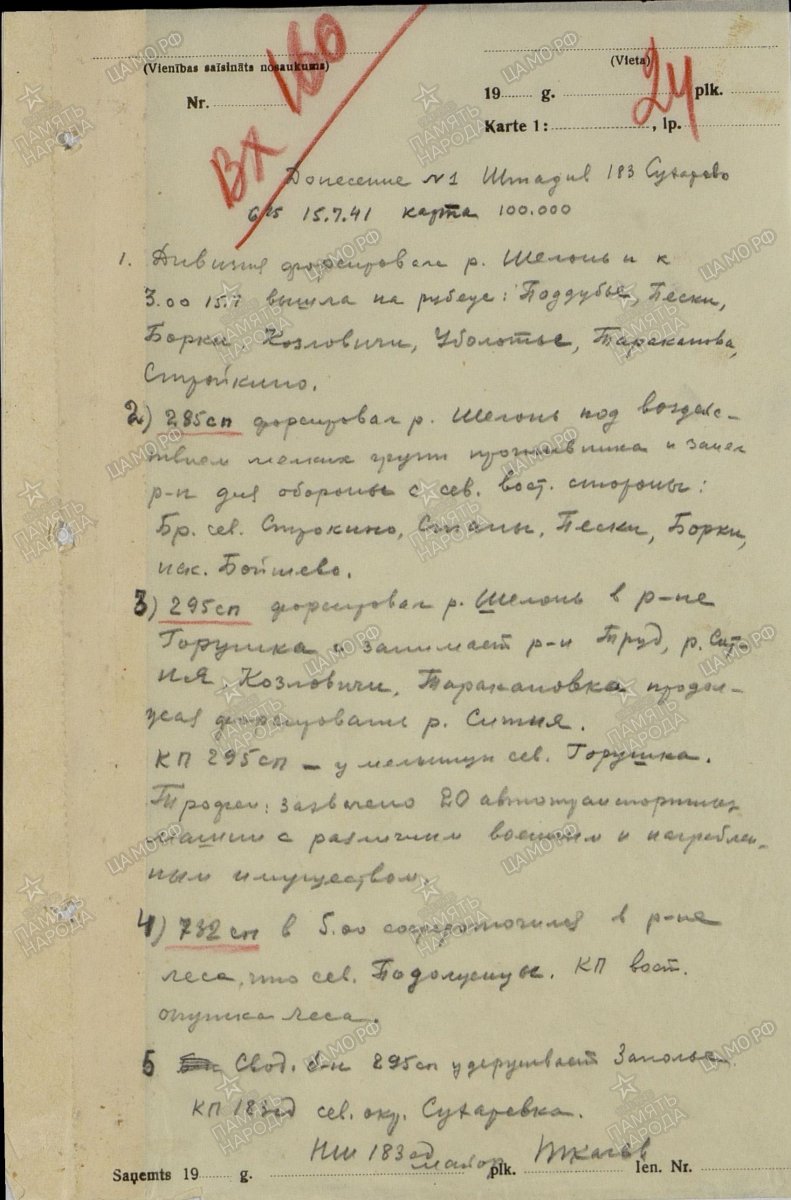 (Vienības saīsināts nosaukums)
(Vieta)
Вх 160
24
Nr.
19 g. plk.
Karte 1: , lp.
Донесение №1 Штадив 183 Сухарево
6 15 15.7.41 карта 100.000
1. Дивизия форсировала р. Шелонь и к
3.00 15.7 вышла на рубеж: Поддубье, Пески,
Борки Козловичи, Уболотье, Тараканова,
Стройкино.
2) 285сп форсировал р. Шелонь под воздейс-
твием мелких групп противника и занял
р-н для обороны с сев. вост. стороны:
Бр. сев. Строкино, Станы, Пески, Борки,
иск. Бойшево.
3) 295сп форсировал р. Шелонь в р-не
Горушка и занимает р-н Труд, р. Сит-
ня Козловичи, Таракановка продол-
жая форсирование р. Ситня.
КП 295сп – у мельницы сев. Горушка.
Трофеи: захвачено 20 автотранспортных
машин с различным военным и награблен-
ным имуществом.
4) 732 сп в 5.00 сосредоточился в р-не
леса, что сев. Подолжицы. КП вост.
опушка леса.
5 Свод. б-н 295сп удерживает Заполье
КП 183сд сев. окр. Сухаревка.
НШ 183сд
майор Ткачев
Saņemts 19 g. plk. Ien. Nr.
ПАМЯТЬ НАРОДА
ЦАМО.РФ